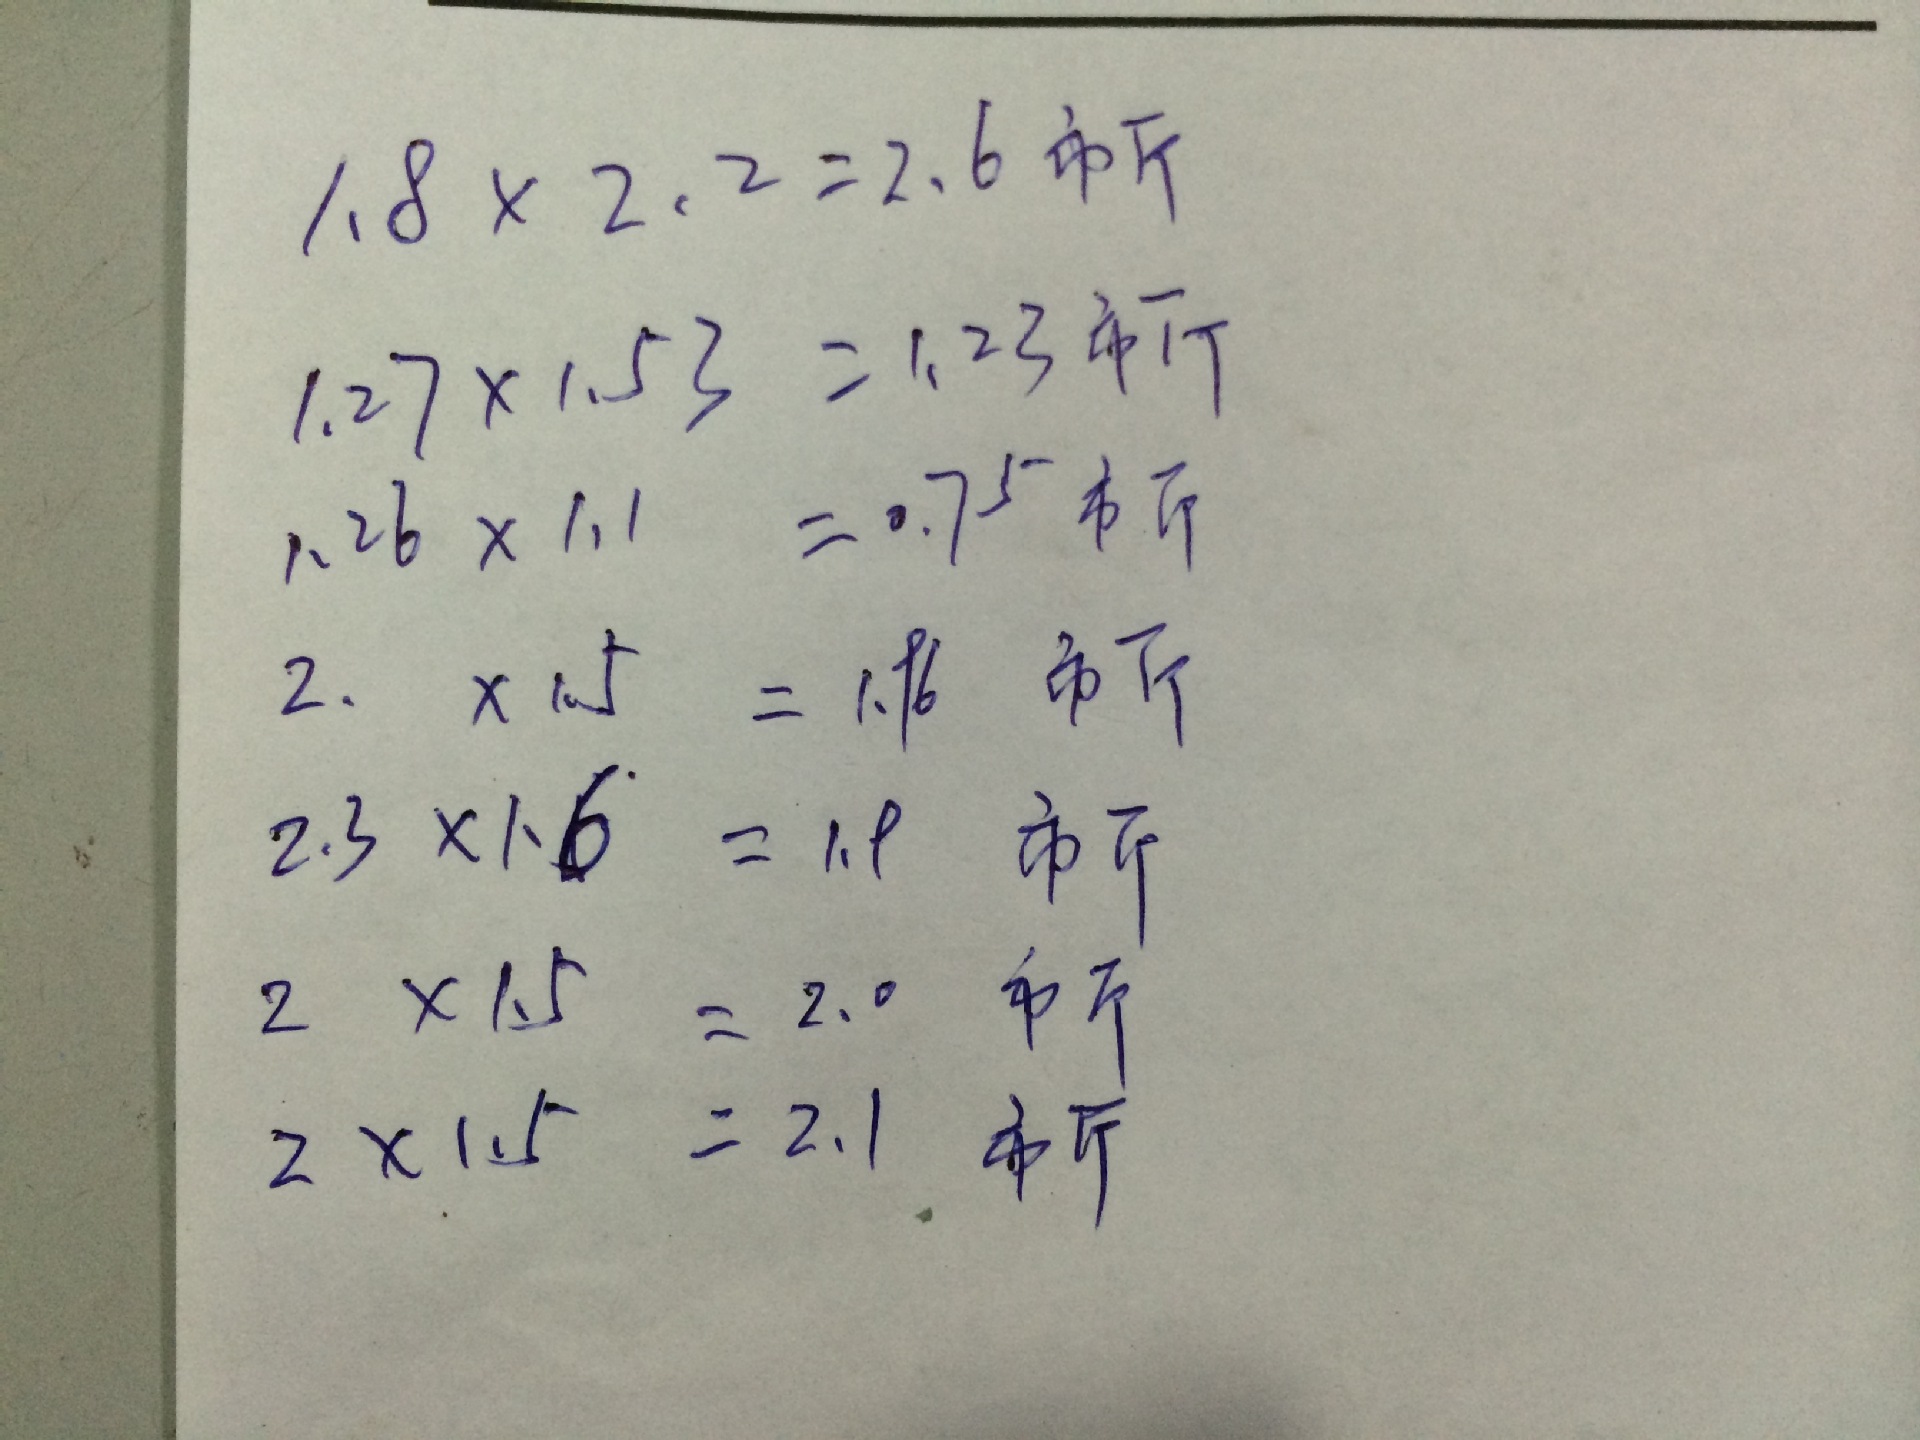 1.8 × 2.2 = 2.6 市斤
1.27 × 1.53 = 1.23 市斤
1.26 × 1.1 = 0.75 市斤
2. × 1.5 = 1.96 市斤
2.3 × 1.6 = 1.9 市斤
2 × 1.5 = 2.0 市斤
2 × 1.5 = 2.1 市斤